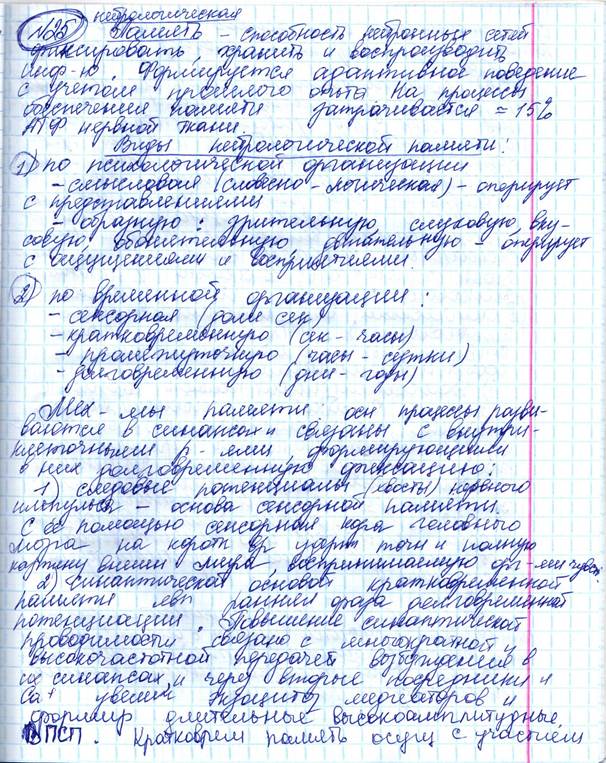 нейрологическая
№25 Память – способность нейронных сетей
фиксировать, хранить и воспроизводить
инф-ю. Формируется адаптивное поведение
с учетом прошлого опыта. На процессы
обеспечения памяти затрачивается ≈ 15%
АТФ нервной ткани.
Виды нейрологической памяти:
1) по психологической организации
– смысловая (словесно-логическая) – оперирует
с представлениями
– образную: зрительную, слуховую, вку-
совую обонятельную, – оперирует
с ощущениями и восприятиями.
2) по временной организации:
– сенсорная (доли сек)
– кратковременную (сек – часы)
– промежуточную (часы – сутки)
– долговременную (дни – годы)
Мех-мы памяти. осн процессы разви-
ваются в синапсах и связаны с внутри-
клеточными р-ями, формирующими
в них долговременную фиксацию:
1) следовые потенциалы (хвосты) нервного
импульса – основа сенсорной памяти.
С её помощью сенсорная кора головного
мозга на коротк вр удерж точн и полную
картину внешн мира, воспринимаемую
2) Синаптической основой кратковременной
памяти явл ранняя фаза долговременной
потенциации. Повышение синаптической
проводимости связано с многократной и
высокочастотной передачей возбуждения в
их синапсах, и через вторые посредники и
Ca+ увелич экзоцитоз медиаторов и
формир длительные высокоамплитудные
ВПСП. Кратковрем память осущ с участием